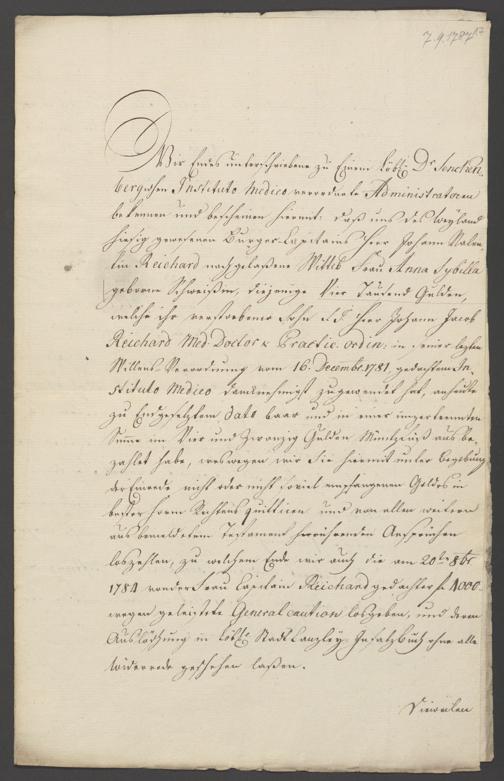 7.9.1787
Wir Endes unterschriebene zu Einem Löbl. Dr. Sencken-
bergischen Instituto Medico verordnete Administratoren
bekennen und bescheinen hiermit: daß uns des weyland
hiesig gewesenen Burger-Capitains Herr Johann Valen-
tin Reichard nachgelaßene Wittib Frau Anna Sybilla
geborne Schweißin, diejenige Vier Tausend Gulden,
welche ihr verstorbener Sohn Herr Johann Jacob
Reichard Med. Doctor & Practic. ordin: in seiner letzten
Willens Verordnung vom 16. Decembr. 1781. gedachtem In-
stituto Medico zugewendet hat, anheute
zu Endgesetztem dato baar und in einer unzertrennten
Summe im Vier und Zwanzig Gulden Münzfuß aus be-
zahlet habe, weswegen wir Sie hiermit unter Begebung
der Einrede nicht oder nicht soviel empfangenen Geldes in
bester Form Rechtens quittiren und von allen weitern
aus bemeldetem Testament herrührenden Ansprüchen
loszehlen, zu welchem Ende wir auch die am 20ten 8br
1784 von der Frau Capitain Reichard gedachter f. 4000.
wegen geleistete General caution losgeben, und deren
Auslöschung in Löbl. Stadt Canzley Insatzbuch ohne alle
Widerrede geschehen laßen.